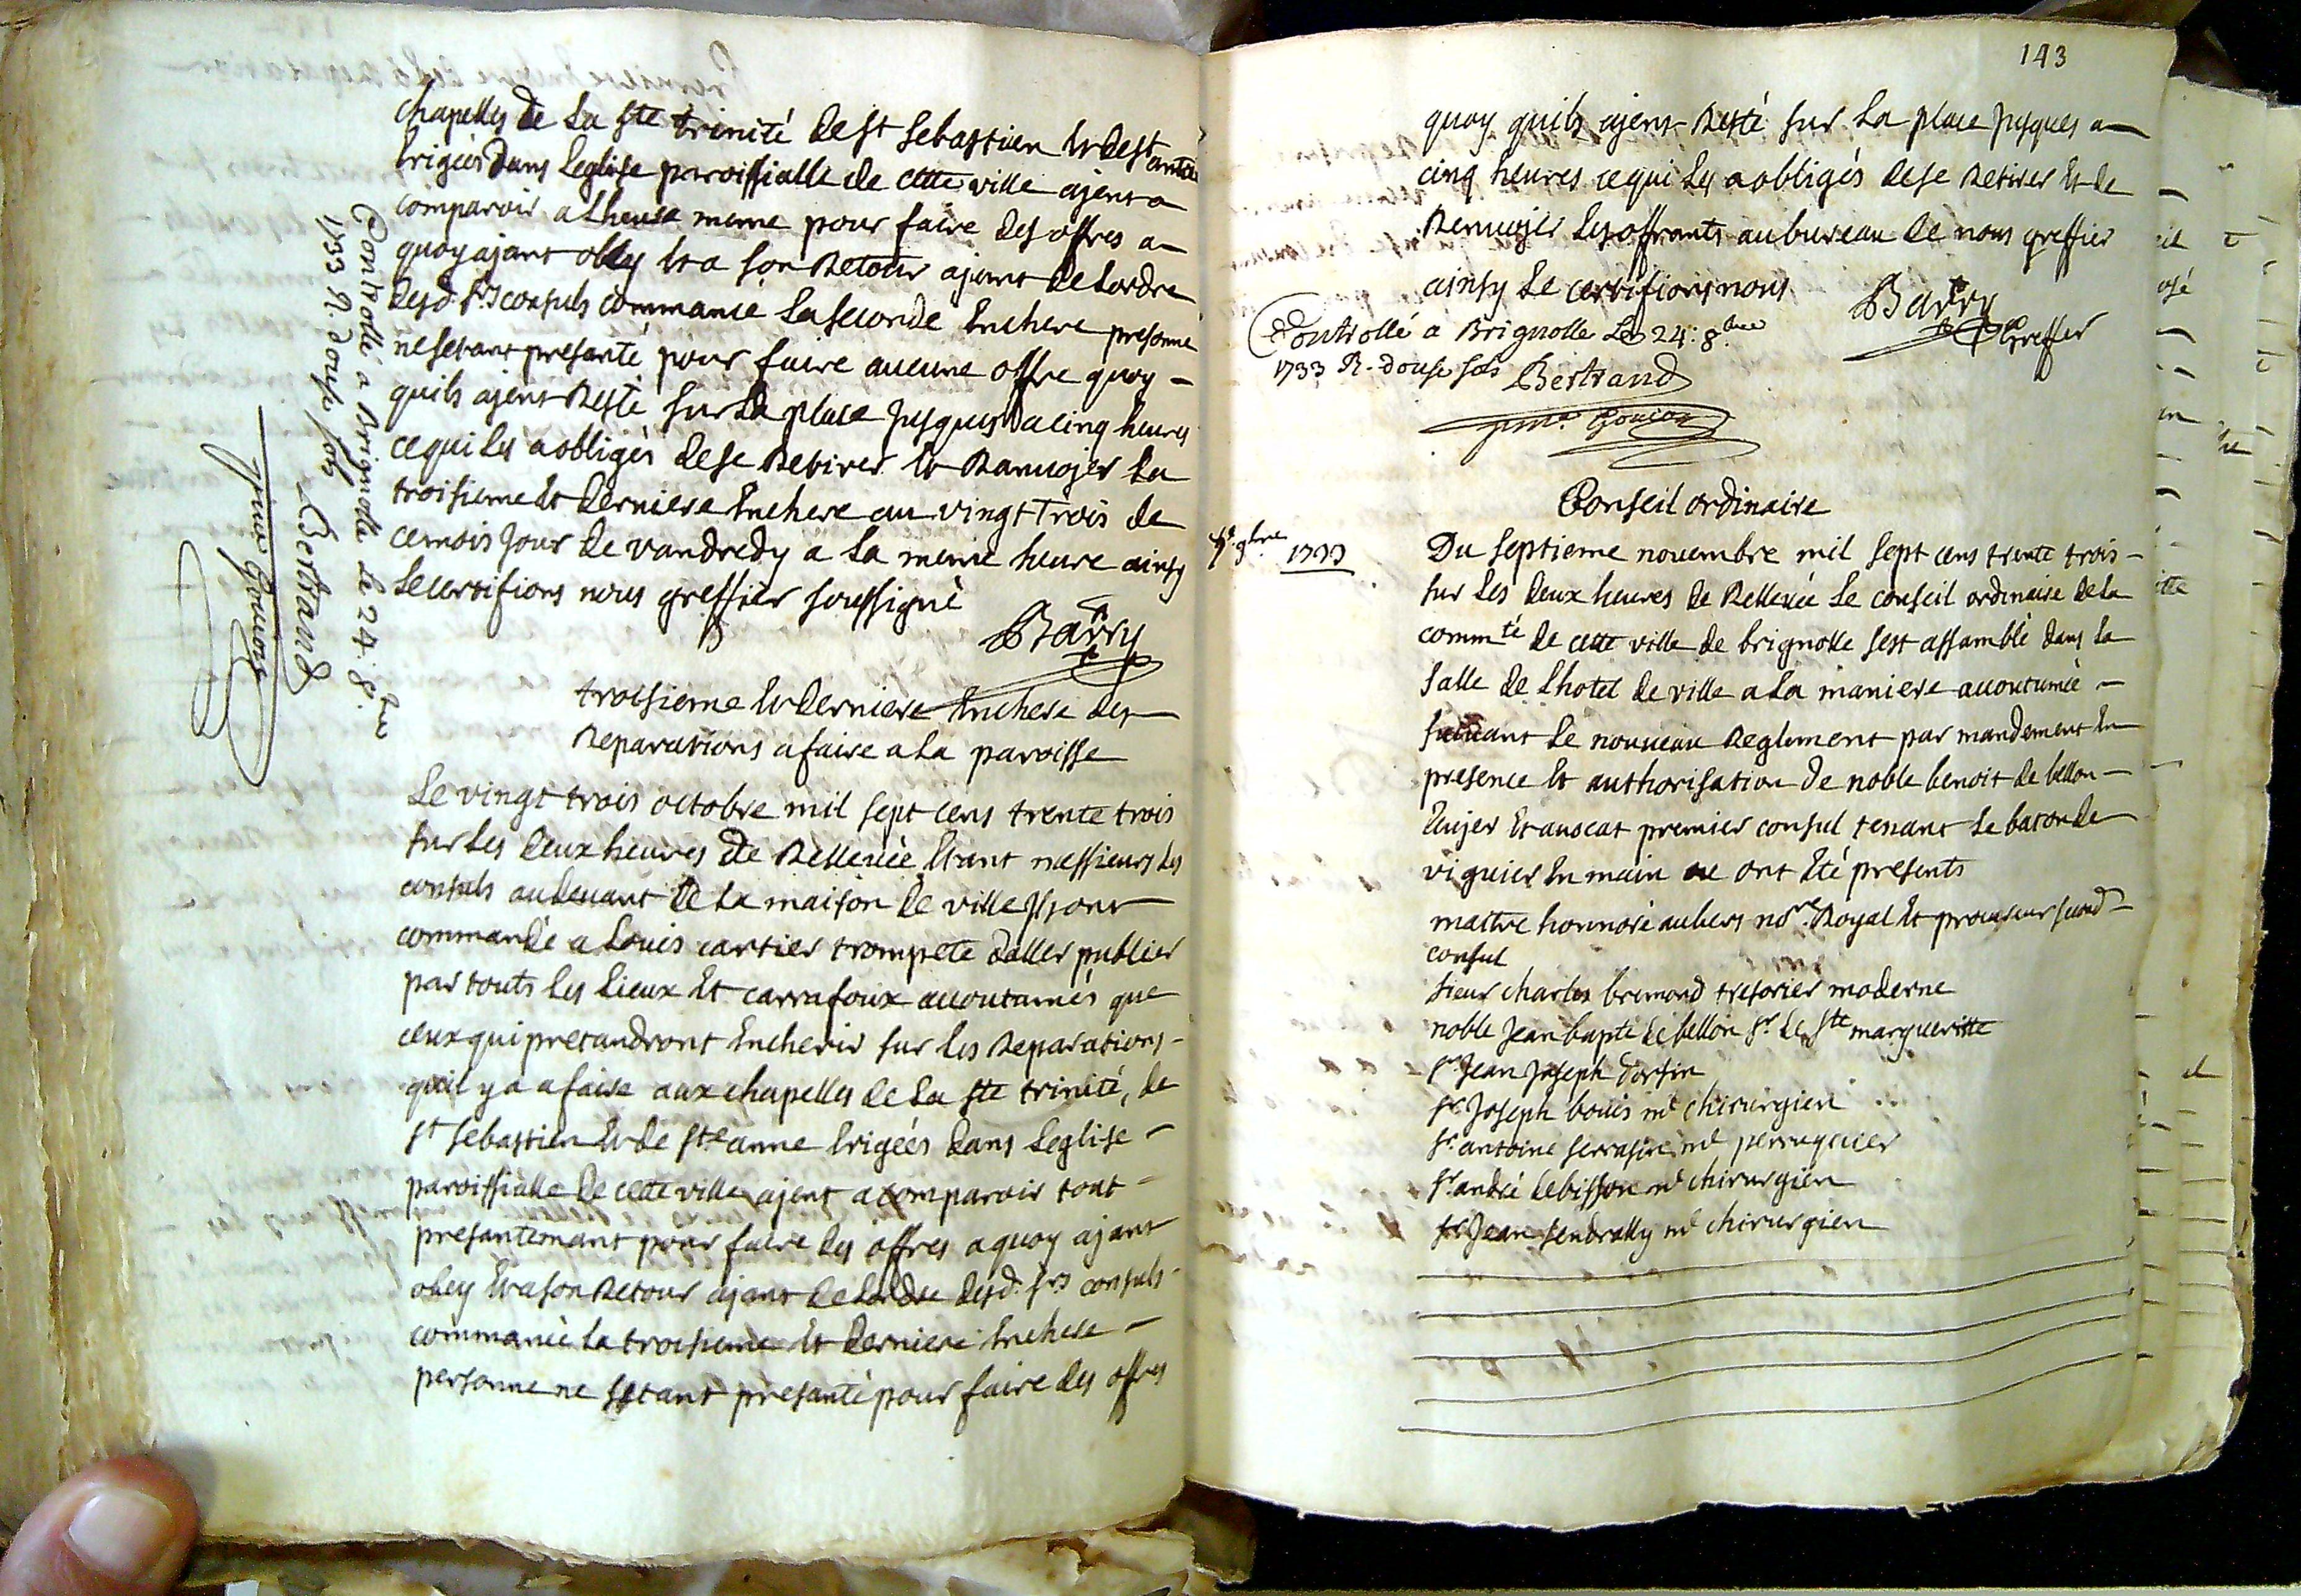 chapelles de la ste trinité de st sebastien et de st anne
erigées dans leglise paroissialle de cette ville ajent a
comparoir a lheure meme pour faire des offres a
quoy ajant obey et a son retour ajant de lordre
desd. srs consuls commancé la seconde enchere presonne
ne setant presanté pour faire aucune offre quoy –
quils ajent resté sur la place jusques a cinq heures
cequi les a obligés de se retirer et ranvojer la
troisieme et derniere enchere au vingt trois de
ce mois jour de vandredy a la meme heure ainsy
le certifions nous greffier soussigné
Barry
Controllé a Brignolle le 24. 8.bre
1733 R. douse sols
Bertrand
troisieme et derniere enchere des
reparations a faire a la paroisse
Le vingt trois octobre mil sept cens trente trois
sur les deux heures de rellevée etant messieurs les
consuls au devant de la maison de ville ils ont
commandé a Louis cartier trompete daller publier
par touts les lieux et carrafoux accoutumés que
ceux qui pretandront encherir sur les reparations –
quil y a a faire aux chapelles de la ste trinité, de
st sebastien et de ste anne erigées dans leglise –
paroissialle de cette ville ajent a comparoir tout –
presantemant pour faire les offres a quoy ajant
obey et a son retour ajant de lordre desd. srs consuls –
commancé la troisieme et derniere enchere –
personne ne setant presanté pour faire des offres
143
quoy quils ajent resté sur la place jusques a –
cinq heures ce qui les a obligés de se retirer et de
renvojer les offrants au bureau de nous greffier
ainsy le certifions nous
Barry
Greffier
Controllé a Brignolle Le 24: 8.bre
1733 R. douse sols Bertrand
Conseil ordinaire
7e 9bre 1733
Du septieme novembre mil sept cens trente trois –
sur les deux heures de rellevée le conseil ordinaire de la
commté de cette ville de brignolle sest assamblé dans la
salle de lhotel de ville a la maniere accoutumée –
suivant le nouveau reglement par mandement en
presence et authorisation de noble benoit de bellon –
ecujer et avocat premier consul tenant le baton de
viguier en main ou ont eté presents
maitre honnoré aubert nore. Royal et procureur second –
consul
sieur charles bremond tresorier moderne
noble jean bapte de bellon sr de ste margueritte
sr jean joseph dorsin
sr joseph bouis me chirurgien
sr antoine serrasine me perruquier
sr andré debisson me chirurgien
sr jean sendrally me chirurgien